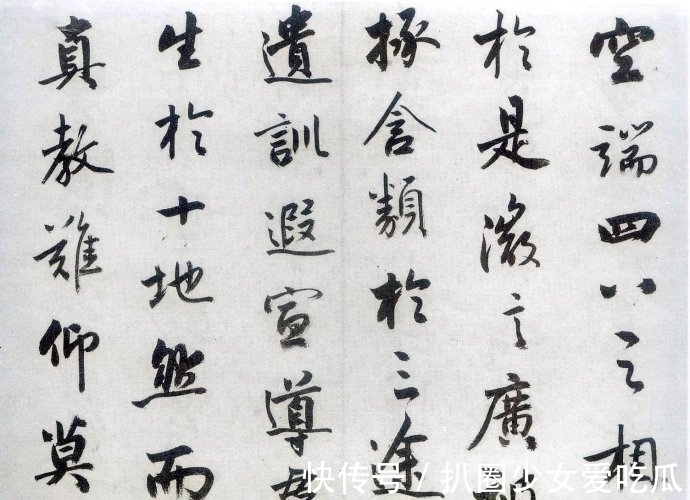 空端四八之相
於是微言廣
拯含類於三途
遺訓遐宣導
生於十地然而
真教難仰莫
快传号 / 扒圈少女爱吃瓜